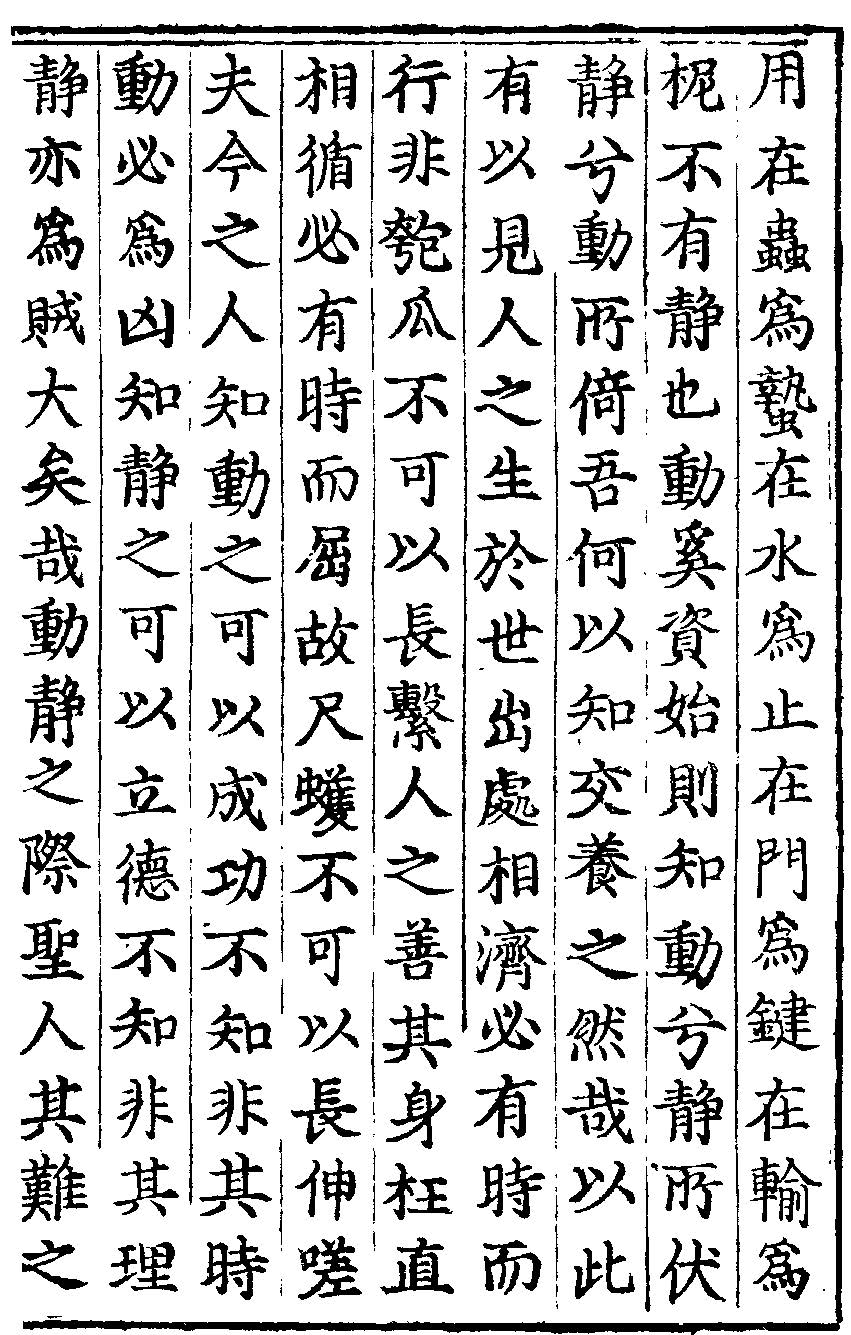 用在蟲爲蟄在水爲止在門爲鍵在輸爲
柅不有静也動奚資始則知動兮静所伏
静兮動所倚吾何以知交養之然哉以此
有以見人之生於世出處相濟必有時而
行非匏瓜不可以長繫人之善其身枉直
相循必有時而屈故尺蠖不可以長伸嗟
夫今之人知動之可以成功不知非其時
動必爲凶知静之可以立德不知非其理
静亦爲賊大矣哉動静之際聖人其難之